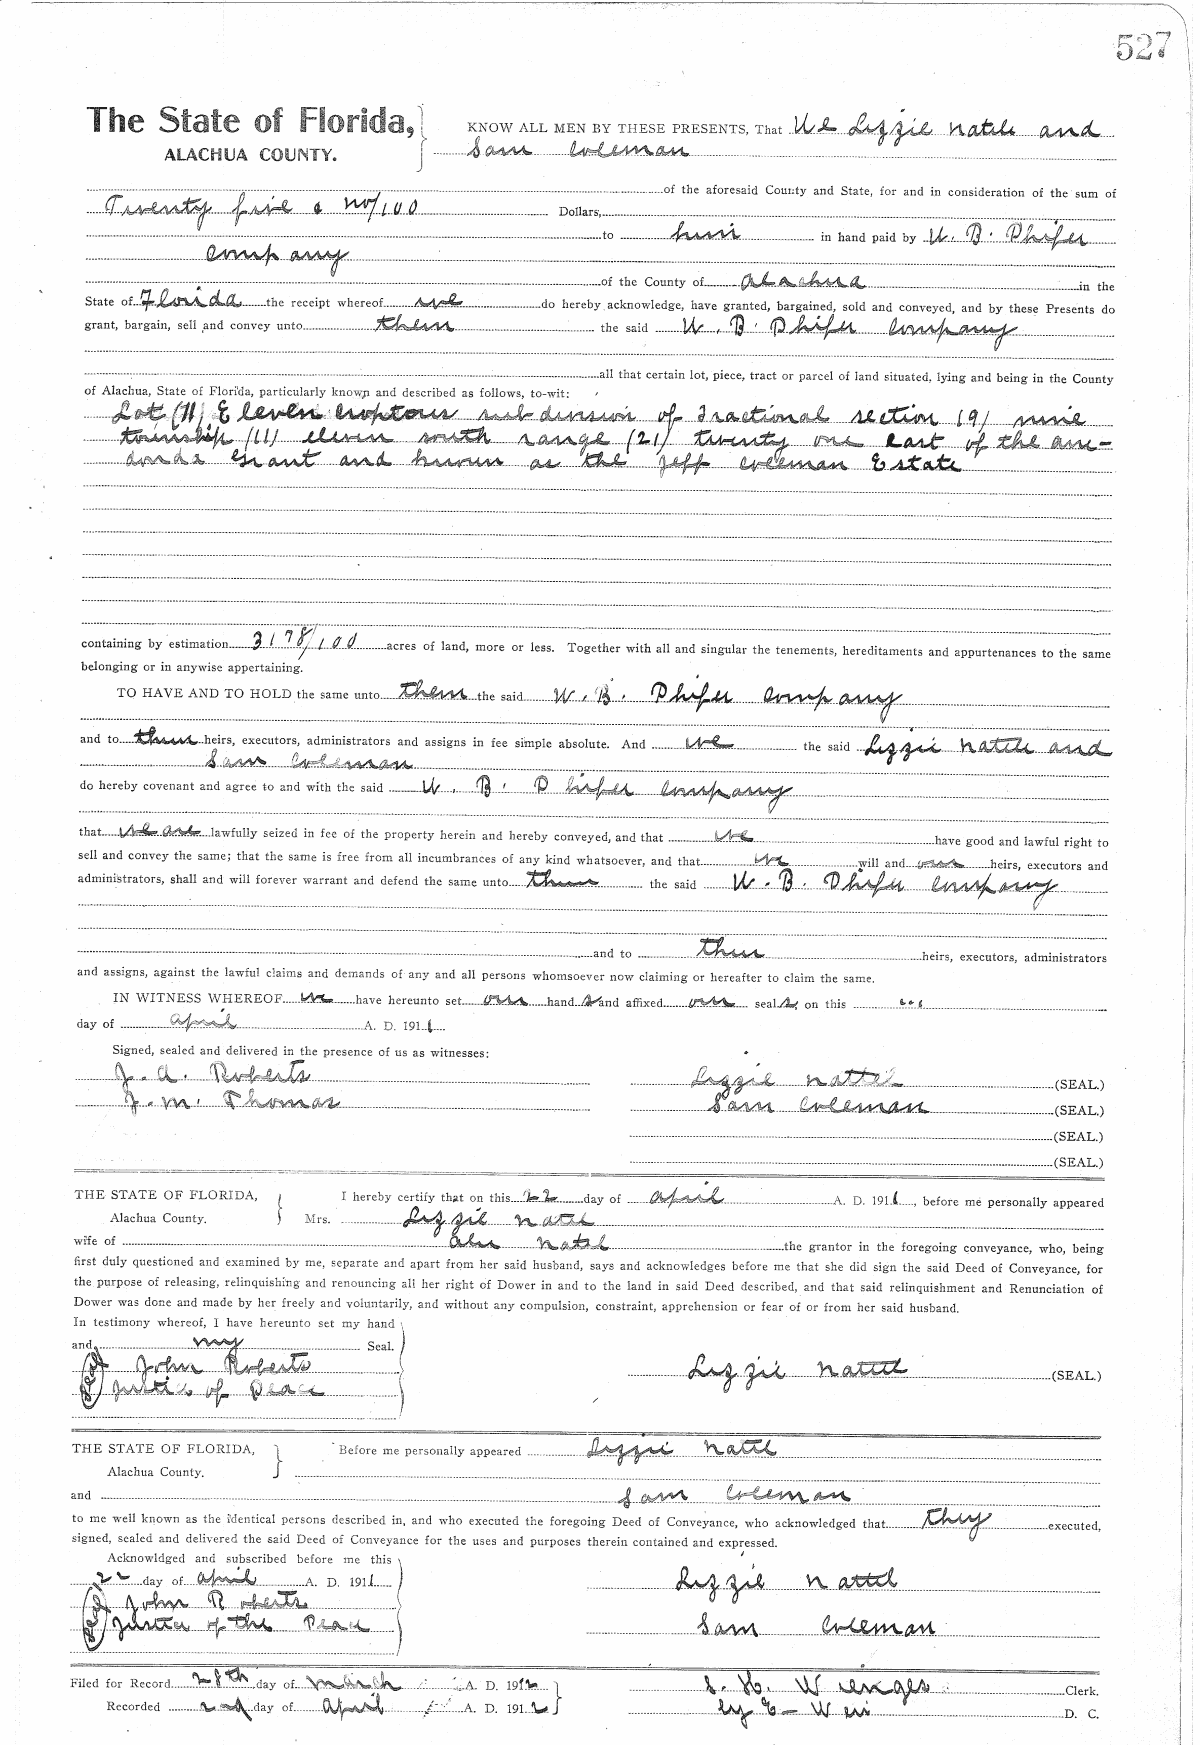 527
The State of Florida,
ALACHUA COUNTY.
KNOW ALL MEN BY THESE PRESENTS, That We Lizzie Nattle and
Sam Coleman
of the aforesaid County and State, for and in consideration of the sum of
Twenty five & no/100 Dollars,
to him in hand paid by W. B. Phifer
Company
of the County of Alachua in the
State of Florida the receipt whereof we do hereby acknowledge, have granted, bargained, sold and conveyed, and by these Presents do
grant, bargain, sell and convey unto them the said W. B. Phifer Company
all that certain lot, piece, tract or parcel of land situated, lying and being in the County
of Alachua, State of Florida, particularly known and described as follows, to-wit:
Lot (11) Eleven sub-division of Fractional section (9) nine
township (11) eleven south range (21) twenty one east of the
Grant and known as the Jeff Coleman Estate
containing by estimation 31 78/100 acres of land, more or less. Together with all and singular the tenements, hereditaments and appurtenances to the same
belonging or in anywise appertaining.
TO HAVE AND TO HOLD the same unto them the said W. B. Phifer Company
and to their heirs, executors, administrators and assigns in fee simple absolute. And we the said Lizzie Nattle and
Sam Coleman
do hereby covenant and agree to and with the said W. B. Phifer Company
that we are lawfully seized in fee of the property herein and hereby conveyed, and that we have good and lawful right to
sell and convey the same; that the same is free from all incumbrances of any kind whatsoever, and that we will and our heirs, executors and
administrators, shall and will forever warrant and defend the same unto them the said W. B. Phifer Company
and to their heirs, executors, administrators
and assigns, against the lawful claims and demands of any and all persons whomsoever now claiming or hereafter to claim the same.
IN WITNESS WHEREOF we have hereunto set our hand s and affixed our seal s, on this
day of April A. D. 1911
Signed, sealed and delivered in the presence of us as witnesses:
J. A. Roberts Lizzie Nattel (SEAL.)
J. M. Thomas Sam Coleman (SEAL.)
(SEAL.)
(SEAL.)
THE STATE OF FLORIDA, I hereby certify that on this 22 day of April A. D. 1911, before me personally appeared
Alachua County. Mrs. Lizzie Natel
wife of Natel the grantor in the foregoing conveyance, who, being
first duly questioned and examined by me, separate and apart from her said husband, says and acknowledges before me that she did sign the said Deed of Conveyance, for
the purpose of releasing, relinquishing and renouncing all her right of Dower in and to the land in said Deed described, and that said relinquishment and Renunciation of
Dower was done and made by her freely and voluntarily, and without any compulsion, constraint, apprehension or fear of or from her said husband.
In testimony whereof, I have hereunto set my hand
and my Seal.
(Seal) John Roberts Lizzie Nattel (SEAL.)
Justice of Peace
THE STATE OF FLORIDA, Before me personally appeared Lizzie Nattel
Alachua County.
and Sam Coleman
to me well known as the identical persons described in, and who executed the foregoing Deed of Conveyance, who acknowledged that they executed,
signed, sealed and delivered the said Deed of Conveyance for the uses and purposes therein contained and expressed.
Acknowldged and subscribed before me this
22 day of April A. D. 1911 Lizzie Nattel
(Seal) John Roberts
Justice of the Peace Sam Coleman
Filed for Record 28th day of March A. D. 1912 S. H. Wienges Clerk.
Recorded 2nd day of April A. D. 1912 by E- D. C.